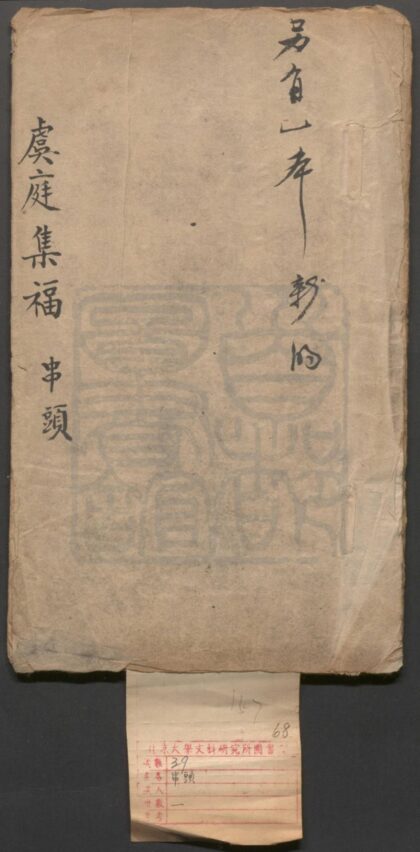 另有一本 新的
虞庭集福 串頭
68
大學文科研究所圖書
39
串頭
一